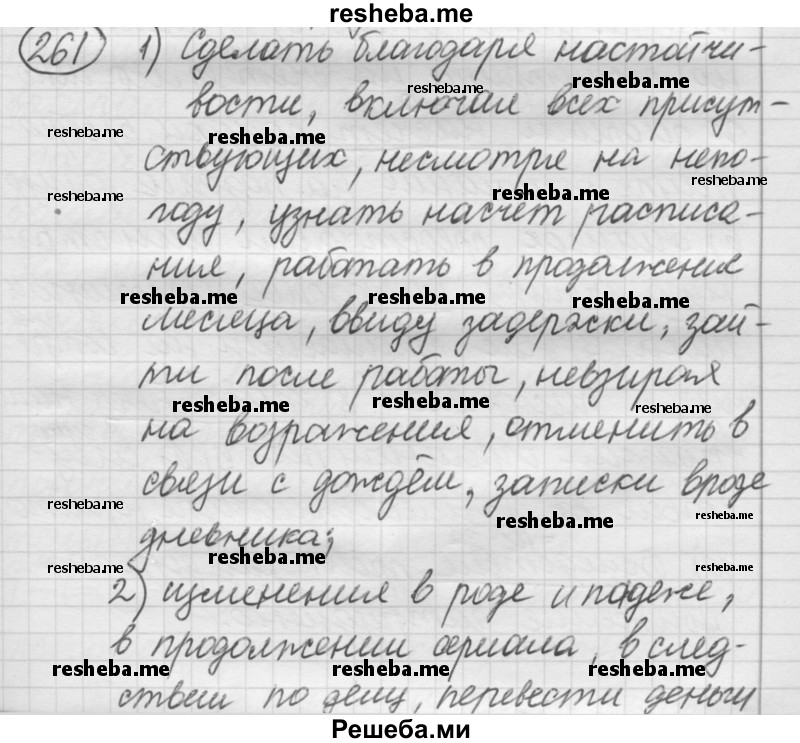 resheba.me
261 1) Сделать благодаря настойчи-
resheba.me
resheba.me
вости, включая всех присут-
resheba.me
resheba.me
ствующих, несмотря на непо-
resheba.me
resheba.me
resheba.me
году, узнать насчёт расписа-
ния, работать в продолжение
resheba.me
resheba.me
resheba.me
месяца, ввиду задержки, зай-
ти после работы, невзирая
resheba.me
resheba.me
resheba.me
на возражения, отменить в
связи с дождём, записки вроде
resheba.me
resheba.me
resheba.me
дневника;
resheba.me
resheba.me
resheba.me
2) изменения в роде и падеже,
в продолжении сериала, в след-
resheba.me
resheba.me
resheba.me
ствии по делу, перевести деньги
Решеба.ми